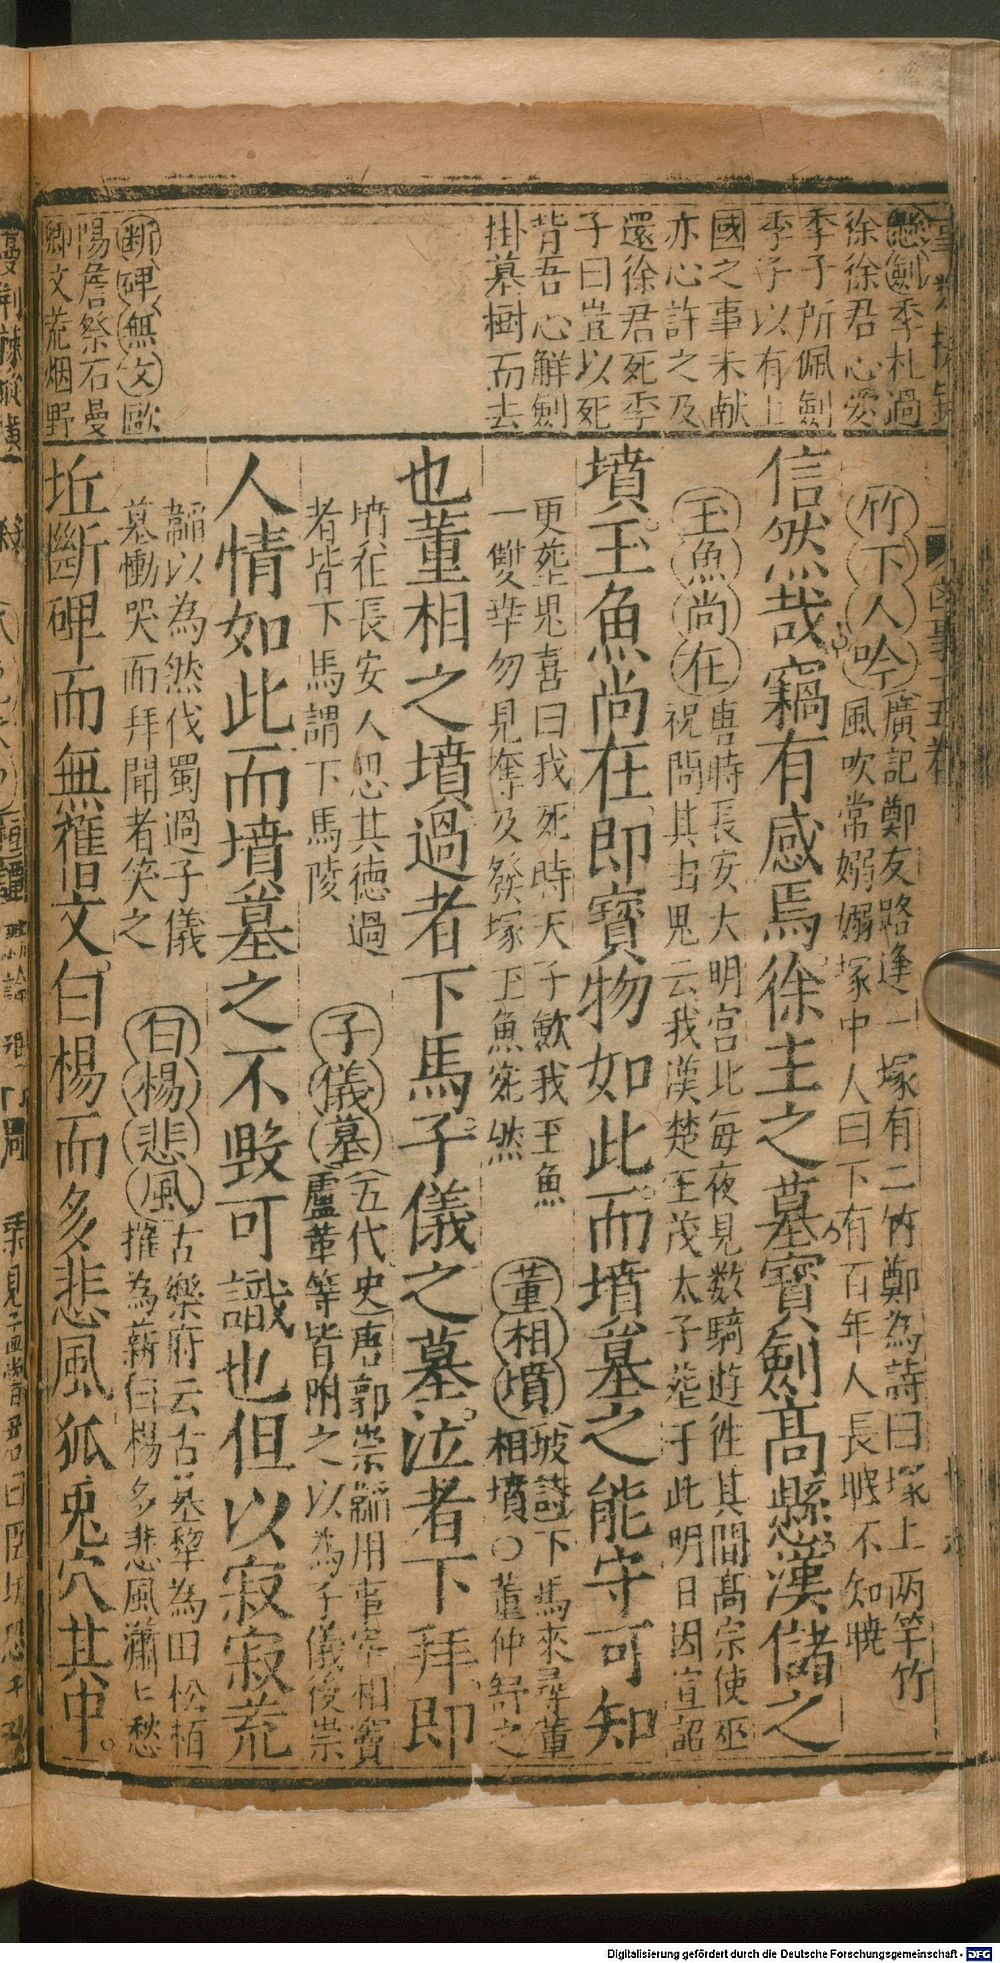 懸劍季札過
徐徐君心愛
季子所佩劍
季子以有上
國之事未献
亦心許之及
還徐君死季
子曰豈以死
背吾心解劍
掛墓樹而去
断碑無文歐
陽詹祭石曼
卿文荒烟野
竹下人吟廣記鄭友路逢一塚有二竹鄭為詩曰塚上两竿竹
風吹常嫋嫋塚中人曰下有百年人長眠不知曉
信然哉竊有感焉徐主之墓寶劍髙懸漢儲之
玉魚尚在唐時長安大明宮北每夜見数騎遊徃其間髙宗使巫
祝問其由鬼云我漢楚王茂太子葬于此明日因宣詔
墳玉魚尚在即寶物如此而墳墓之能守可知
更葬鬼喜曰我死時天子歛我玉魚
一雙幸勿見奪及發塚玉魚宛然
董相墳坡詩下馬來尋董
相墳○董仲舒之
也董相之墳過者下馬子儀之墓泣者下拜即
墳在長安人思其德過
者皆下馬謂下馬陵
子儀墓五代史唐郭崇韜用事宰相
盧革等皆附之以為子儀後崇
人情如此而墳墓之不毀可識也但以寂寂荒
韜以為然伐蜀過子儀
墓慟哭而拜聞者笑之
白楊悲風古樂府云古墓犂為田松栢
摧為薪白楊多悲風瀟ヒ愁
坵斷碑而無舊文白楊而多悲風狐兎穴其中。
Digitalisierung gefördert durch die Deutsche Forschungsgemeinschaft - DFG